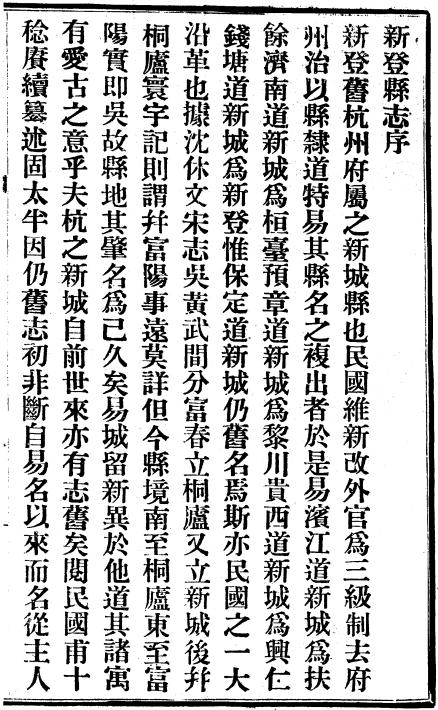 新登縣志序
新登舊杭州府屬之新城縣也民國維新改外官爲三級制去府
州治以縣隸道特易其縣名之複出者於是易濱江道新城爲扶
餘濟南道新城爲桓臺預章道新城爲黎川貴西道新城爲興仁
錢塘道新城爲新登惟保定道新城仍舊名焉斯亦民國之一大
沿革也據沈休文宋志吳黃武間分富春立桐廬又立新城後幷
桐廬寰宇記則謂幷富陽事遠莫詳但今縣境南至桐廬東至富
陽實卽吳故縣地其肇名爲已久矣易城留新異於他道其諸寓
有愛古之意乎夫杭之新城自前世來亦有志舊矣閱民國甫十
稔賡續纂述固太半因仍舊志初非斷自易名以來而名從主人